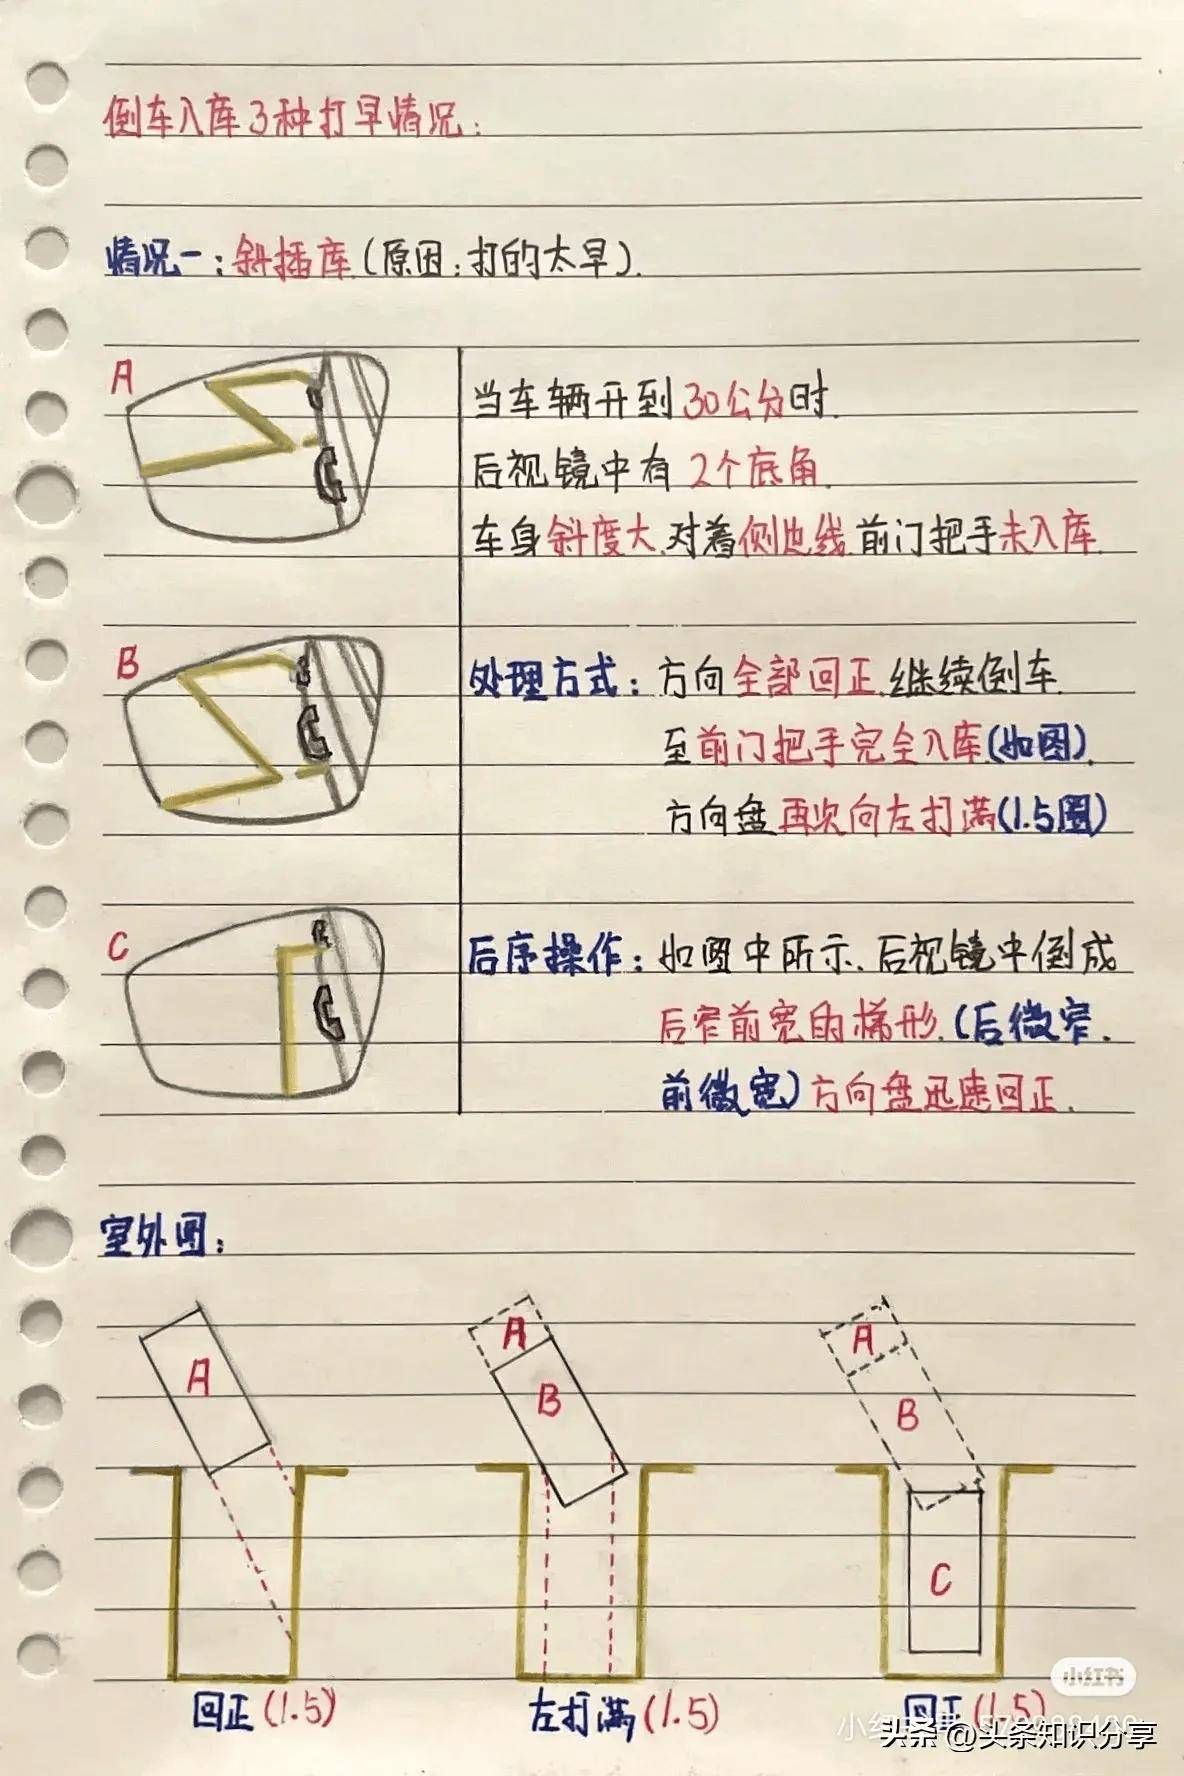 倒车入库3种打早情况：
情况一：斜插库（原因：打的太早）.
A
当车辆开到30公分时.
后视镜中有2个底角.
车身斜度大.对着侧边线.前门把手未入库.
B
处理方式：方向全部回正.继续倒车.
至前门把手完全入库（如图）.
方向盘再次向左打满（1.5圈）
C
后序操作：如图中所示.后视镜中倒成
后窄前宽的梯形.（后微窄.
前微宽）方向盘迅速回正.
室外图：
A
A
B
A
B
C
小红书
回正（1.5）
左打满（1.5）
回正（1.5）
头条 @头条知识分享